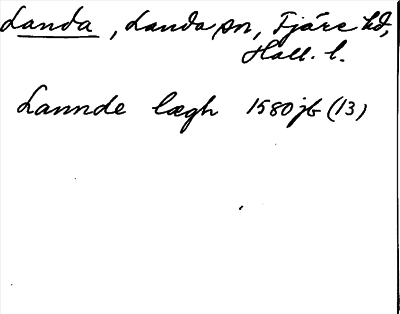 Landa, Landa sn, Fjäre hd,
Hall. l.
Lannde lægh 1580 jb (13)